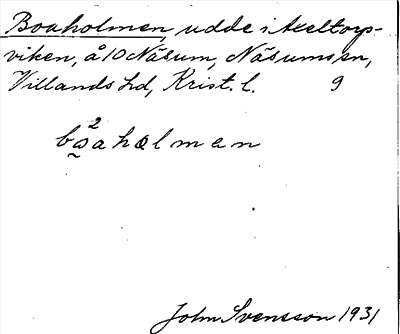 Boaholmen, udde i Axeltorps-
viken, å 10 Näsum, Näsums sn,
Villands hd, Krist. l. 9
bω̰²aholmen
John Svensson 1931